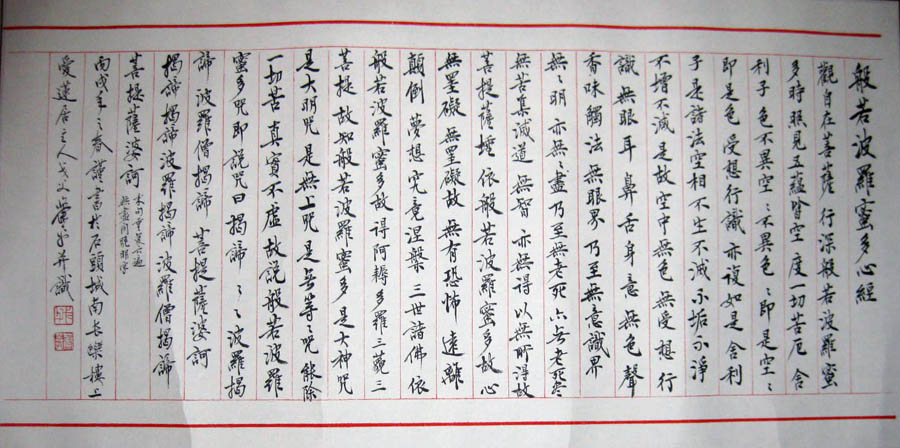 般若波羅蜜多心經
觀自在菩薩行深般若波羅蜜
多時照見五蘊皆空度一切苦厄舍
利子色不異空〻不異色〻即是空〻
即是色受想行識亦復如是舍利
子是諸法空相不生不滅不垢不淨
不增不減是故空中無色無受想行
識無眼耳鼻舌身意無色聲
香味觸法無眼界乃至無意識界
無〻明亦無〻盡乃至無老死亦無老死盡
無苦集滅道無智亦無得以無所得故
菩提薩埵依般若波羅蜜多故心
無罣礙無罣礙故無有恐怖遠離
顛倒夢想究竟涅槃三世諸佛依
般若波羅蜜多故得阿耨多羅三藐三
菩提故知般若波羅蜜多是大神咒
是大明咒是無上咒是無等〻咒能除
一切苦真實不虛故說般若波羅
蜜多咒即說咒曰揭諦〻〻波羅揭
諦波羅僧揭諦菩提薩婆訶
揭諦揭諦波羅揭諦波羅僧揭諦
菩提薩婆訶
丙戌年之春謹書於石頭城南長樂樓上
愛蓮居主人并識